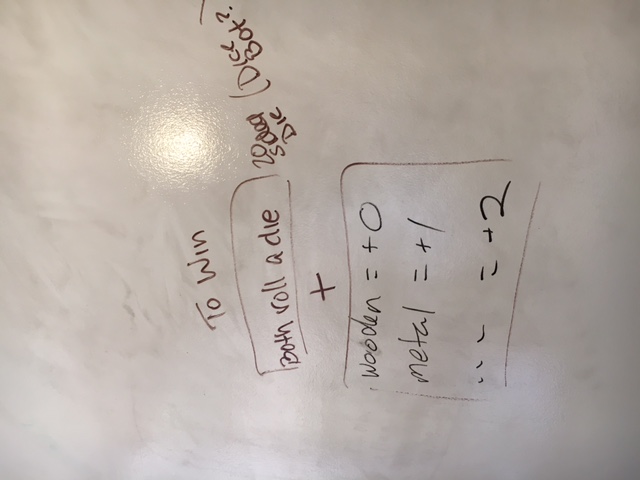 To Win
Both roll a die
20
Sided
Die
(Dice
Bot?
+
wooden = +0
metal = +1
... = +2